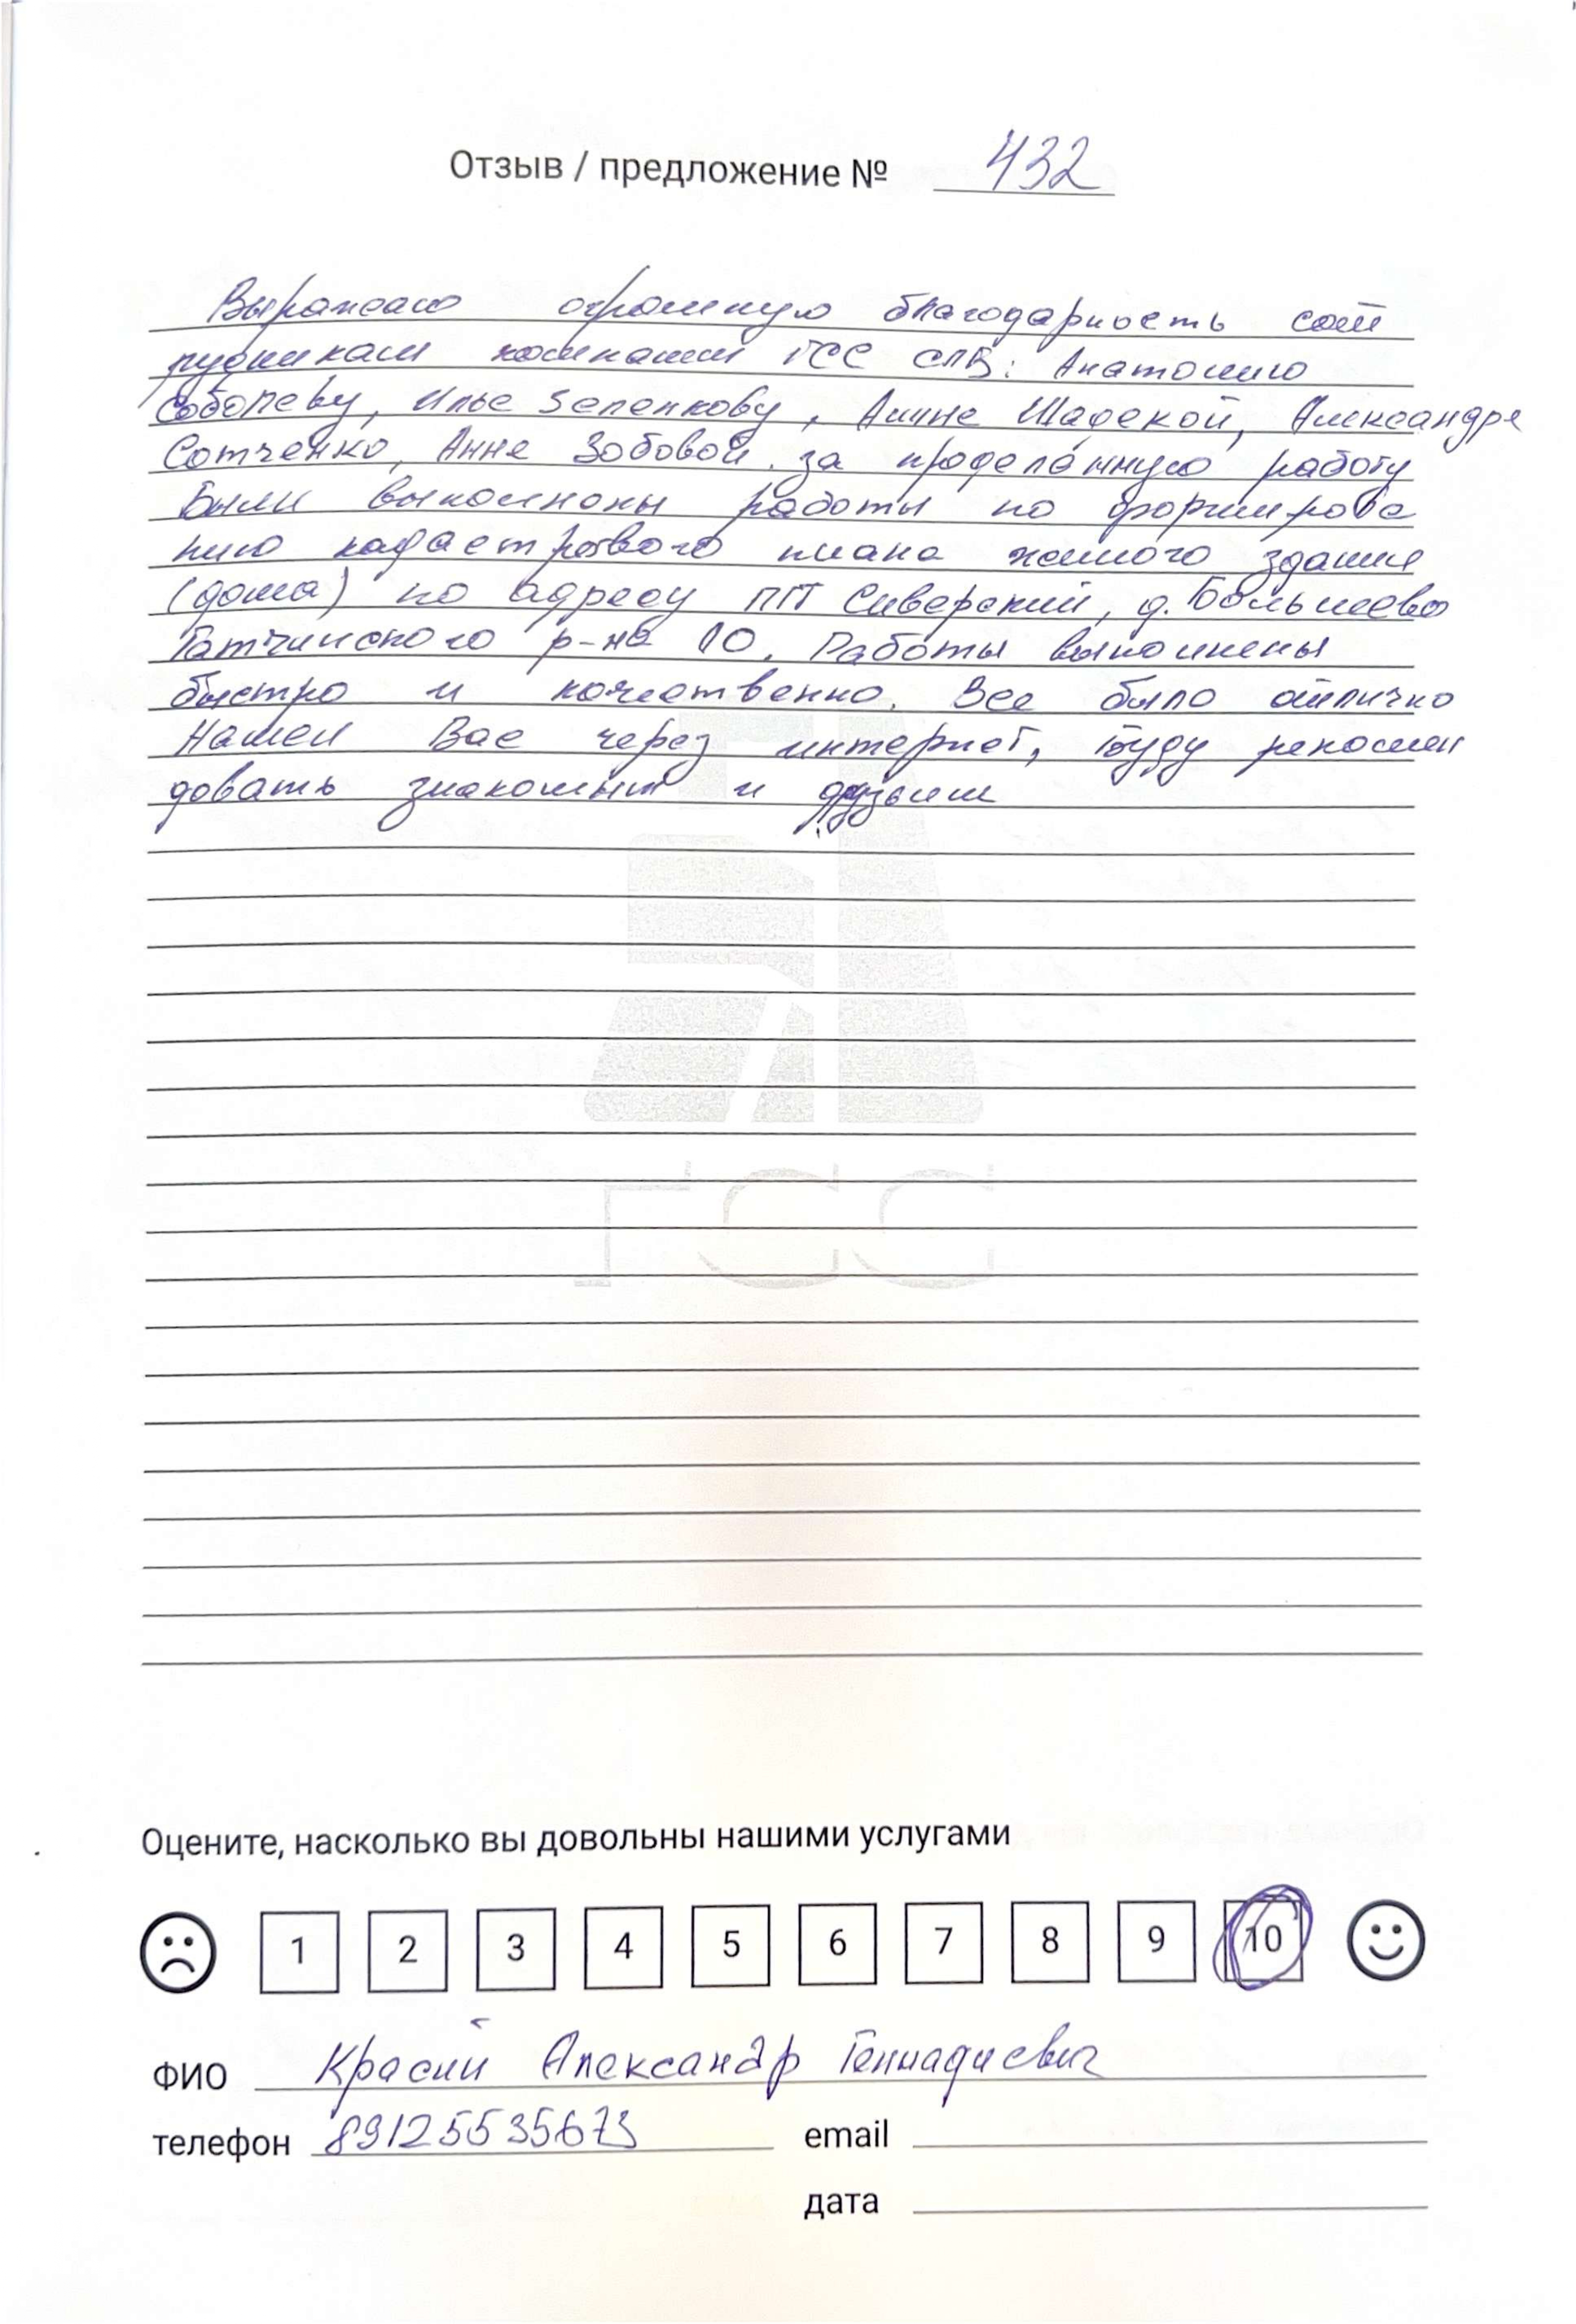 Отзыв / предложение № 432
Выражаю огромную благодарность сот
рудникам компании ГСС СПБ: Анатолию
Соболеву, Илье Зеленкову, Алине Шадской, Александре
Сотченко, Анне Зобовой за проделанную работу
Были выполнены работы по формирова
нию кадастрового плана жилого здания
(дома) по адресу ПГТ Сиверский, д. Большево
Гатчинского р-на ЛО. Работы выполнены
быстро и качественно. Все было отлично
Нашел Вас через интернет, Буду рекомен
довать знакомым и друзьям
ГСС
Оцените, насколько вы довольны нашими услугами
1 2 3 4 5 6 7 8 9 10
ФИО Красий Александр Геннадиевич
телефон 89125535673 email
дата